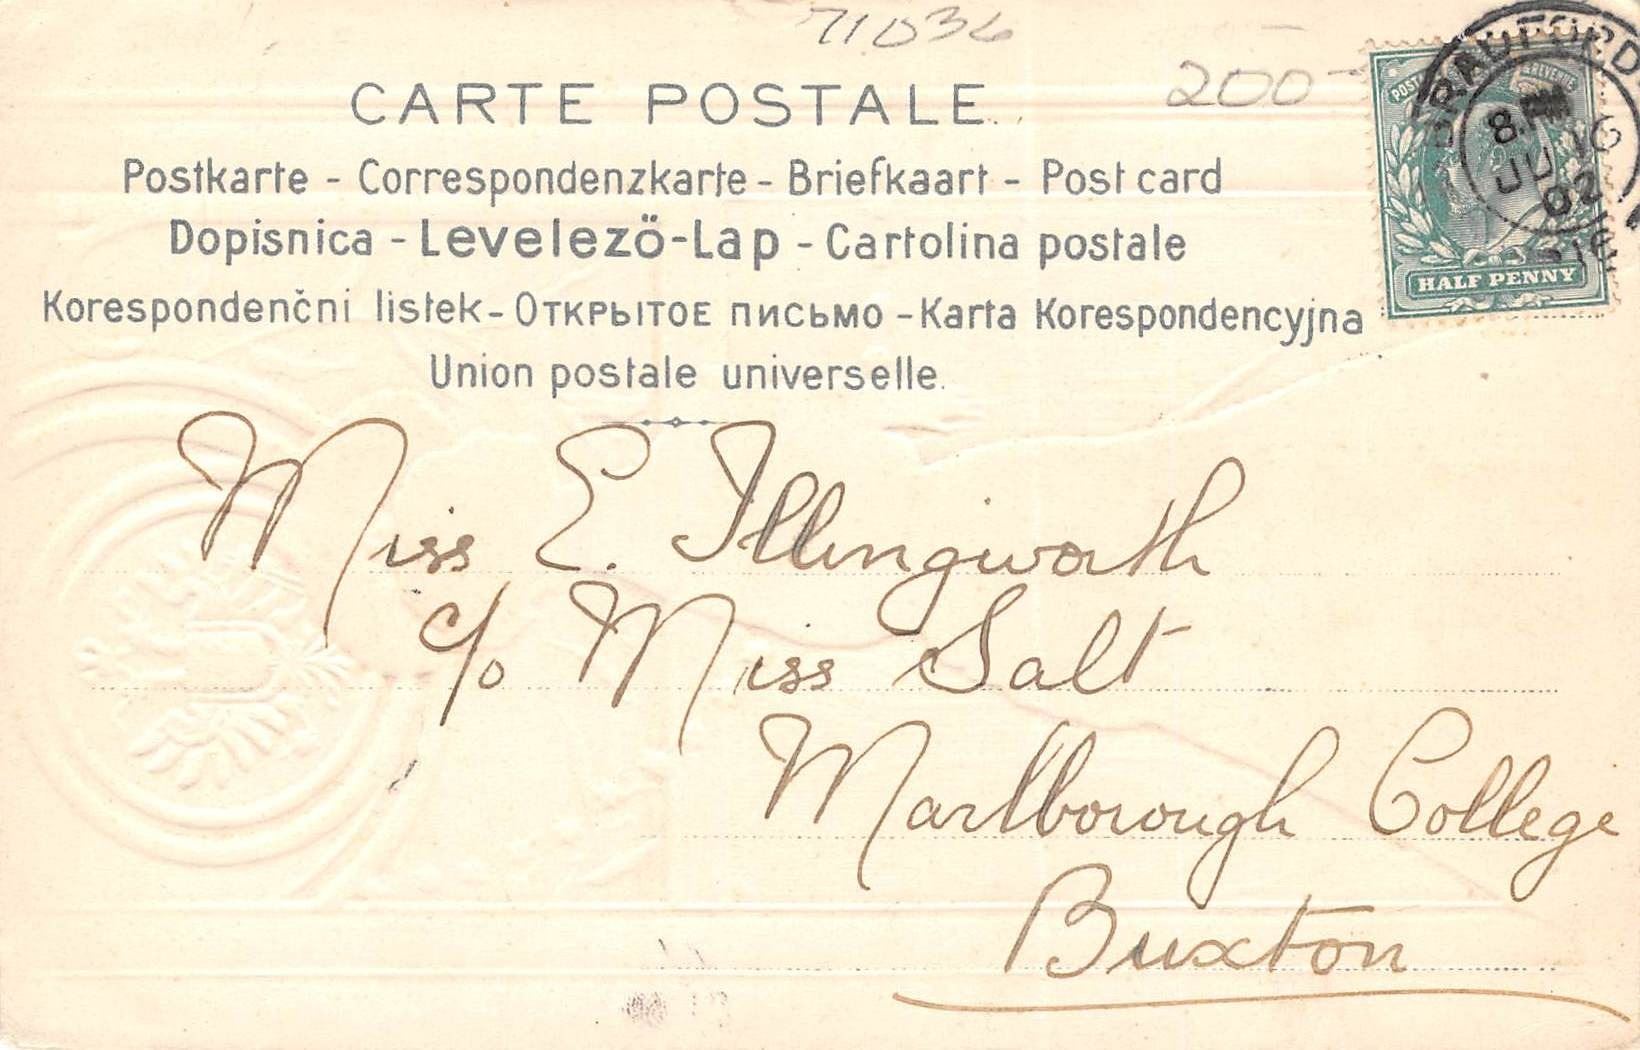 71036
200-
CARTE POSTALE.
Postkarte - Correspondenzkarte - Briefkaart - Post card
Dopisnica - Levelező-Lap - Cartolina postale
Korespondenční lístek - Открытое письмо - Karta Korespondencyjna
Union postale universelle.
BRADFORD
JU 16
02
HALF PENNY
Miss E. Illingworth
c/o Miss Salt
Marlborough College
Buxton